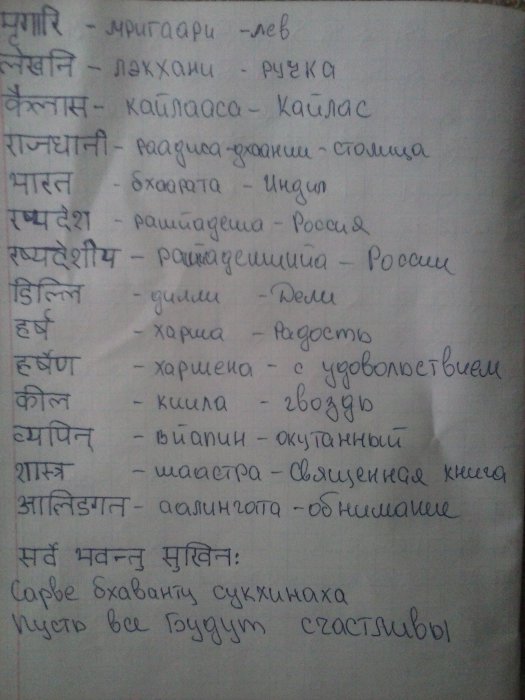 मृगारि - мригаари - лев
लेखनि - лэкхани - ручка
कैलास - кайлааса - Кайлас
राजधानी - раадиса-дхаании - столица
भारत - бхаарата - Индия
रष्यदेश - рашйадеша - Россия
रष्यदेशीय - рашйадешийа - России
डिल्लि - дилли - Дели
हर्ष - харша - Радость
हर्षेण - харшена - с удовольствием
कील - киила - гвоздь
व्यापिन् - вйапин - окутанный
शास्त्र - шаастра - Священная книга
आलिङगत - аалингата - обнимание
सर्वे भवन्तु सुखिनः
Сарве бхаванту сукхинаха
Пусть все будут счастливы